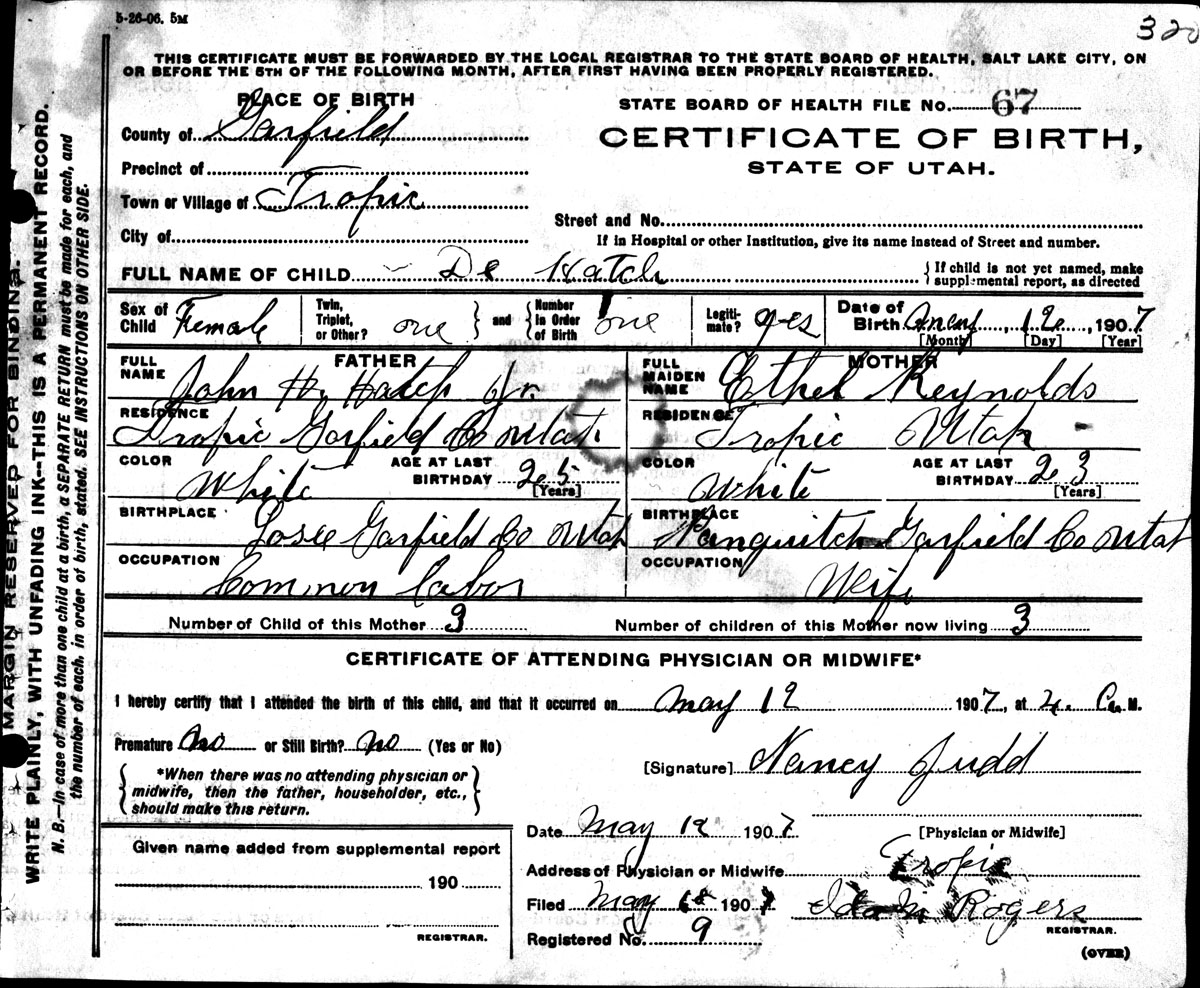 5-26-06. 5M
320
THIS CERTIFICATE MUST BE FORWARDED BY THE LOCAL REGISTRAR TO THE STATE BOARD OF HEALTH, SALT LAKE CITY, ON
OR BEFORE THE 5TH OF THE FOLLOWING MONTH, AFTER FIRST HAVING BEEN PROPERLY REGISTERED.
MARGIN RESERVED FOR BINDING.
WRITE PLAINLY, WITH UNFADING INK--THIS IS A PERMANENT RECORD.
N. B.—In case of more than one child at a birth, a SEPARATE RETURN must be made for each, and
the number of each, in order of birth, stated. SEE INSTRUCTIONS ON OTHER SIDE.
PLACE OF BIRTH
County of Garfield
Precinct of
Town or Village of Tropic
City of
STATE BOARD OF HEALTH FILE NO. 67
CERTIFICATE OF BIRTH,
STATE OF UTAH.
Street and No.
If in Hospital or other Institution, give its name instead of Street and number.
FULL NAME OF CHILD De Hatch
{ If child is not yet named, make
supplemental report, as directed
Sex of Child Female
Twin, Triplet, or Other? one } and { Number in Order of Birth one
Legiti-mate? yes
Date of Birth May, 12, 1907
[Month] [Day] [Year]
FATHER
FULL NAME John H. Hatch Jr.
RESIDENCE
Tropic Garfield Co Utah
COLOR White
AGE AT LAST BIRTHDAY 25 [Years]
BIRTHPLACE
Losee Garfield Co Utah
OCCUPATION
Common Labor
MOTHER
FULL MAIDEN NAME Ethel Reynolds
RESIDENCE
Tropic Utah
COLOR White
AGE AT LAST BIRTHDAY 23 [Years]
BIRTHPLACE
Panguitch Garfield Co Utah
OCCUPATION
Wife
Number of Child of this Mother 3
Number of children of this Mother now living 3
CERTIFICATE OF ATTENDING PHYSICIAN OR MIDWIFE*
I hereby certify that I attended the birth of this child, and that it occurred on May 12 1907, at 4. a. M.
Premature No or Still Birth? No (Yes or No)
{ *When there was no attending physician or
midwife, then the father, householder, etc.,
should make this return. }
[Signature] Nancy Judd
Date May 12 1907
[Physician or Midwife]
Given name added from supplemental report
190
REGISTRAR.
Address of Physician or Midwife Tropic
Filed May 18 1907 Rogers
REGISTRAR.
Registered No. 9
(OVER)